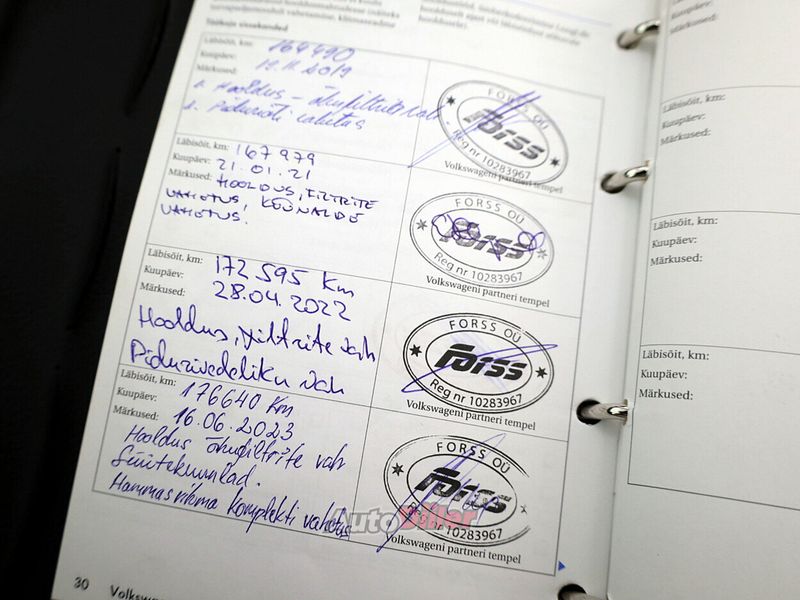 Läbisõit, km: 164490
Kuupäev: 12.11.2019
Märkused:
1. Hooldus – õhufiltrite vah.
2. Piduriõli vahetus
FORSS OÜ
Forss
Reg nr 10283967
Volkswageni partneri tempel
Läbisõit, km: 167979
Kuupäev: 21.01.21
Märkused: HOOLDUS, FILTRITE
VAHETUS, KÜÜNALDE
VAHETUS.
FORSS OÜ
Forss
Reg nr 10283967
Volkswageni partneri tempel
Läbisõit, km: 172595 km
Kuupäev: 28.04.2022
Märkused:
Hooldus, filtrite vah
Pidurivedeliku vah
FORSS OÜ
Forss
Reg nr 10283967
Volkswageni partneri tempel
Läbisõit, km: 176640 km
Kuupäev: 16.06.2023
Märkused:
Hooldus õhufiltrite vah
Süüteküünlad.
Hammasrihma komplekti vahetus
FORSS OÜ
Forss
Reg nr 10283967
Volkswageni partneri tempel
AutoDiler
30 Volkswa
Kuupäev:
Märkused:
Läbisõit, km:
Kuupäev:
Märkused:
Läbisõit, km:
Kuupäev:
Märkused:
Läbisõit, km:
Kuupäev:
Märkused: